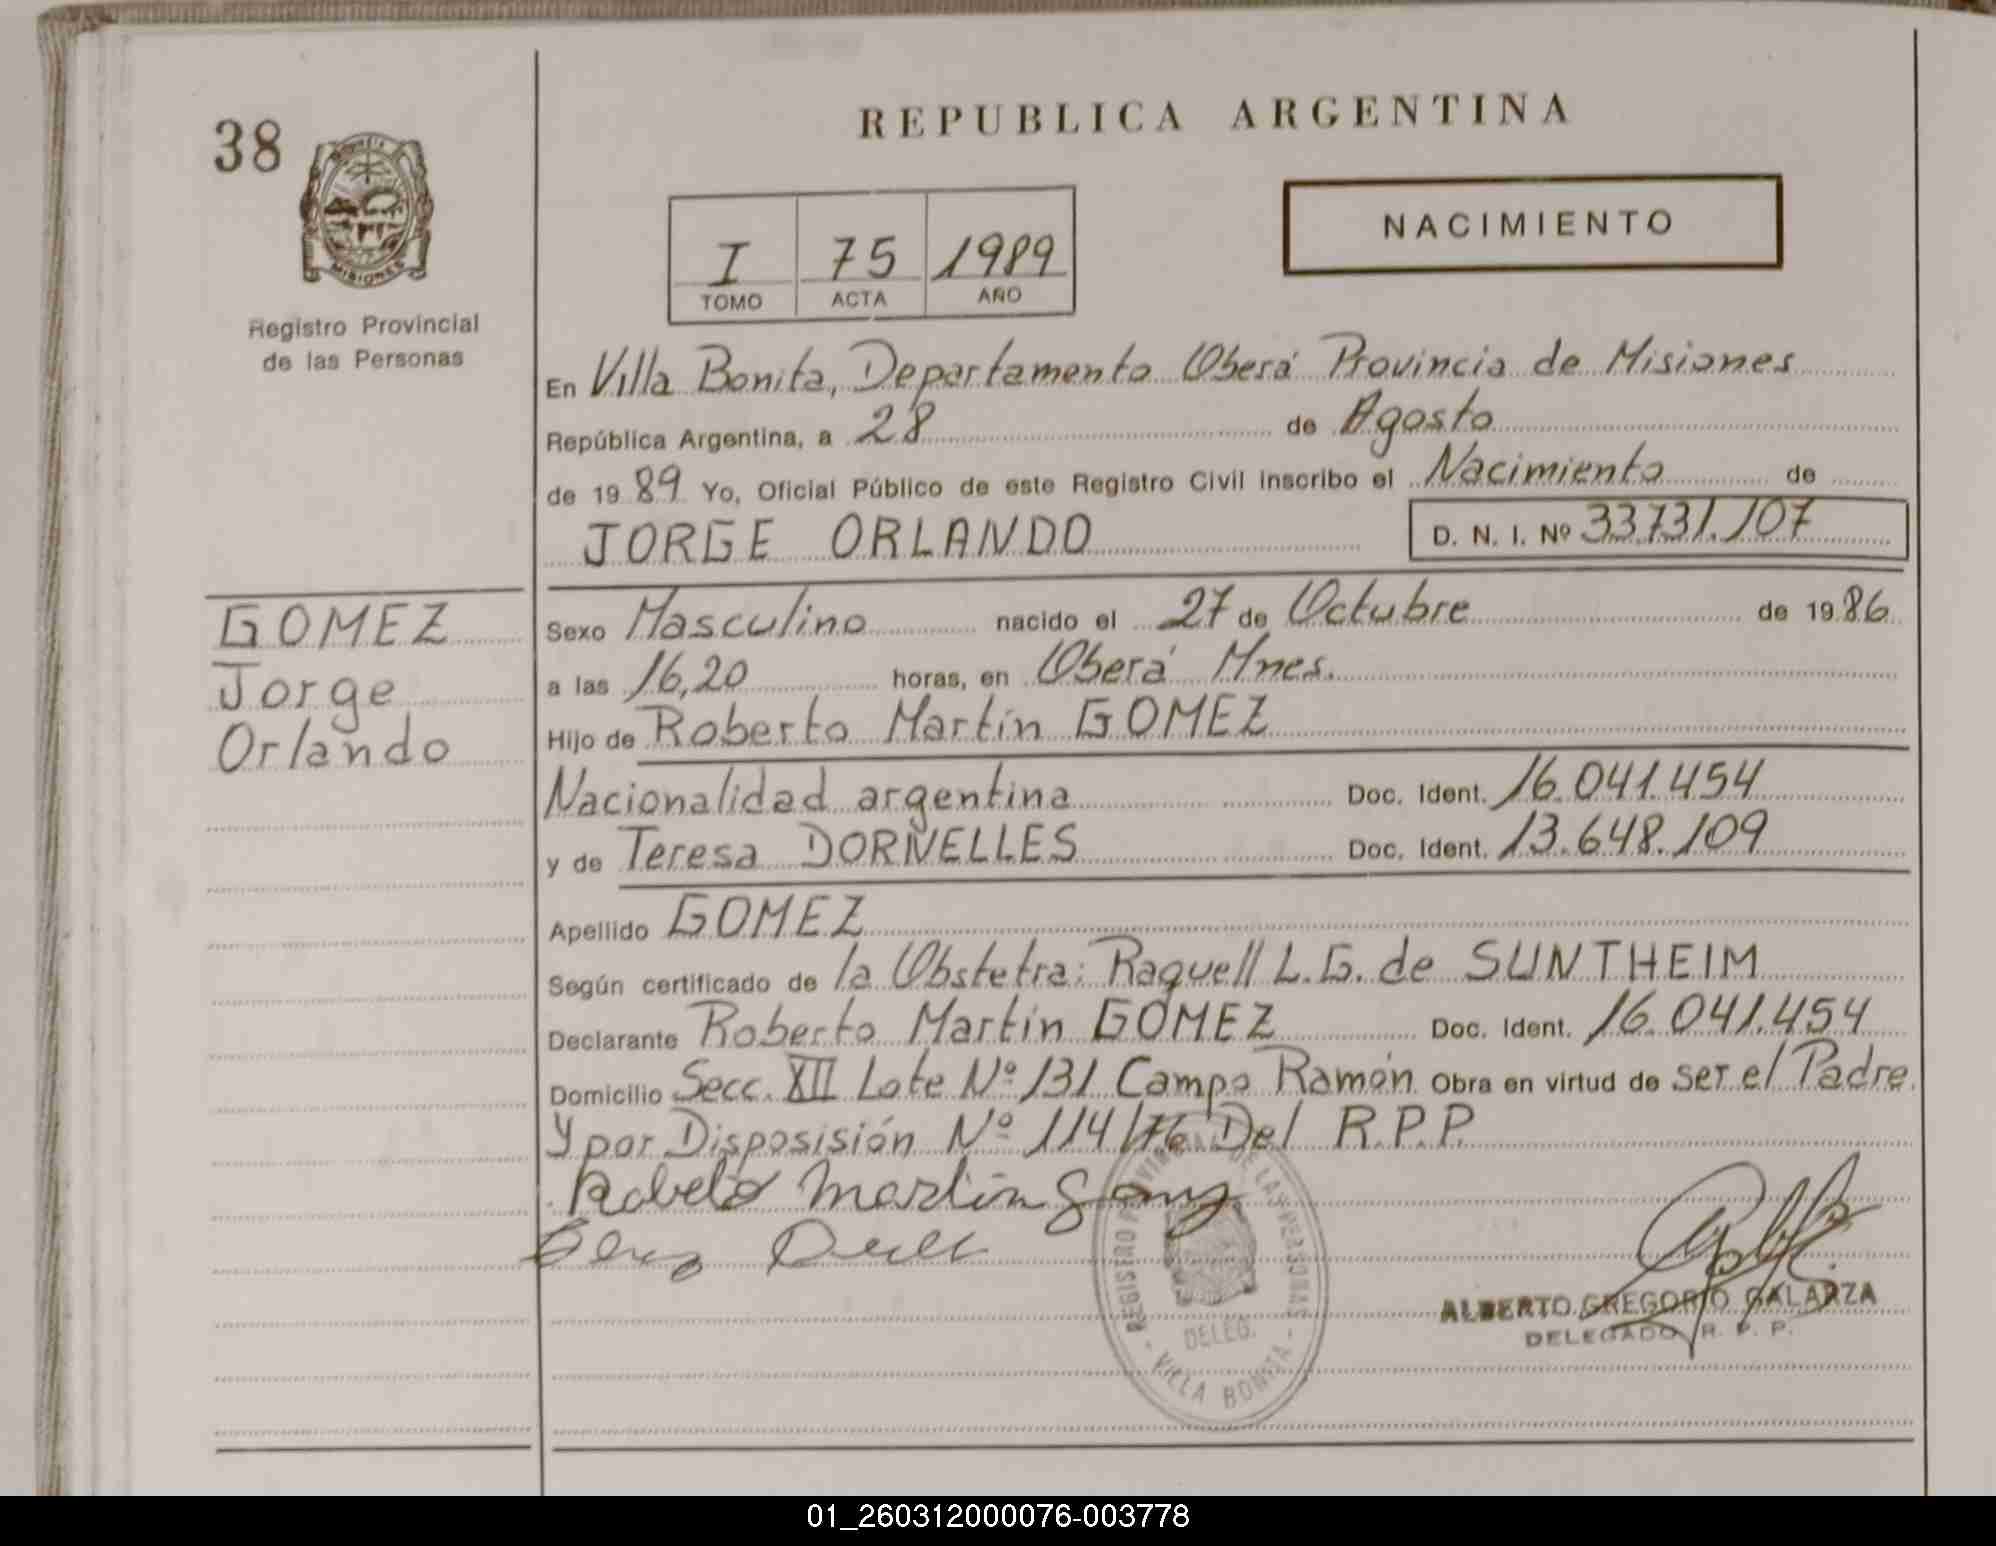 REPUBLICA ARGENTINA
38
NACIMIENTO
I 75 1989
TOMO ACTA AÑO
MISIONES
Registro Provincial
de las Personas
En Villa Bonita, Departamento Oberá Provincia de Misiones
República Argentina, a 28 de Agosto
de 1989 Yo, Oficial Público de este Registro Civil inscribo el Nacimiento de
JORGE ORLANDO D. N. I. Nº 33731.107
GOMEZ
Jorge
Orlando
Sexo Masculino nacido el 27 de Octubre de 1986
a las 16,20 horas, en Oberá Mnes.
Hijo de Roberto Martín GOMEZ
Nacionalidad argentina Doc. Ident. 16.041.454
y de Teresa DORNELLES Doc. Ident. 13.648.109
Apellido GOMEZ
Según certificado de la Obstetra: Raquell L.G. de SUNTHEIM
Declarante Roberto Martín GOMEZ Doc. Ident. 16.041.454
Domicilio Secc. XII Lote Nº 131 Campo Ramón Obra en virtud de ser el Padre
Y por Disposisión Nº 114/76 Del R.P.P
Roberto Martin Gomez
REGISTRO PROVINCIAL DE LAS PERSONAS
DELEG.
- VILLA BONITA -
ALBERTO GREGORIO GALARZA
DELEGADO R. P. P.
01_260312000076-003778